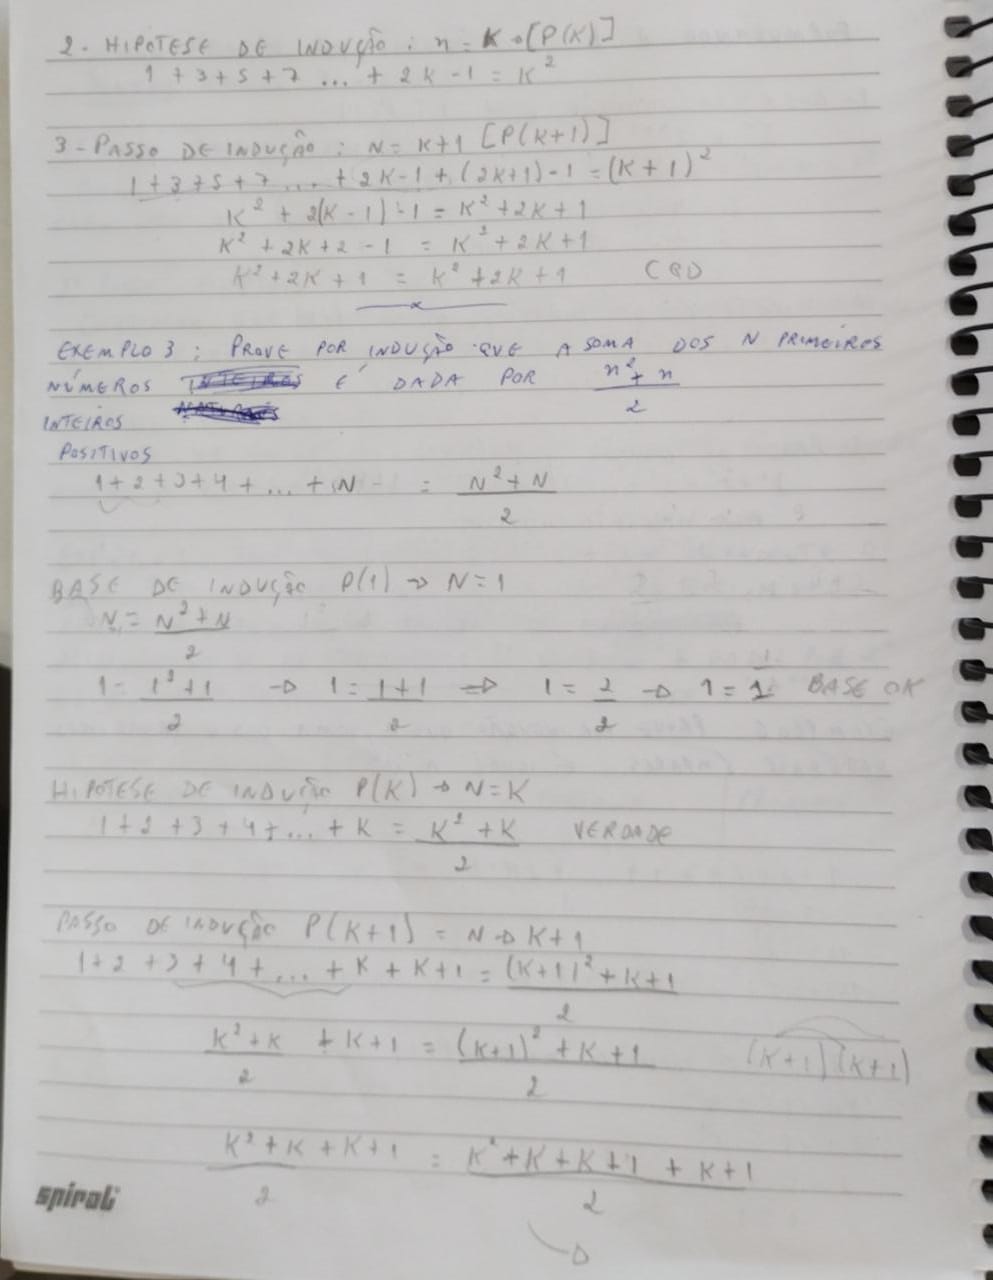 2- HIPOTESE DE INDUÇÃO : n = K → [P(K)]
1 + 3 + 5 + 7 ... + 2K - 1 = K²
3 - PASSO DE INDUÇÃO : N = K+1 [P(K+1)]
1 + 3 + 5 + 7 ... + 2K-1 + (2K+1) - 1 = (K+1)²
K² + 2(K - 1) - 1 = K² + 2K + 1
K² + 2K + 2 - 1 = K² + 2K + 1
K² + 2K + 1 = K² + 2K + 1 CQD
EXEMPLO 3 : PROVE POR INDUÇÃO QUE A SOMA DOS N PRIMEIROS
NÚMEROS É DADA POR n² + n / 2
INTEIROS
POSITIVOS
1 + 2 + 3 + 4 + ... + N = N² + N / 2
BASE DE INDUÇÃO P(1) → N = 1
N = N² + N / 2
1 = 1² + 1 / 2 → 1 = 1 + 1 / 2 ⇒ 1 = 2 / 2 → 1 = 1 BASE OK
HIPOTESE DE INDUÇÃO P(K) → N = K
1 + 2 + 3 + 4 + ... + K = K² + K / 2 VERDADE
PASSO DE INDUÇÃO P(K+1) = N → K+1
1 + 2 + 3 + 4 + ... + K + K+1 = (K+1)² + K+1 / 2
K² + K / 2 + K+1 = (K+1)² + K+1 / 2 (K+1)(K+1)
K² + K / 2 + K+1 = K² + K + K + 1 + K+1 / 2
spiral